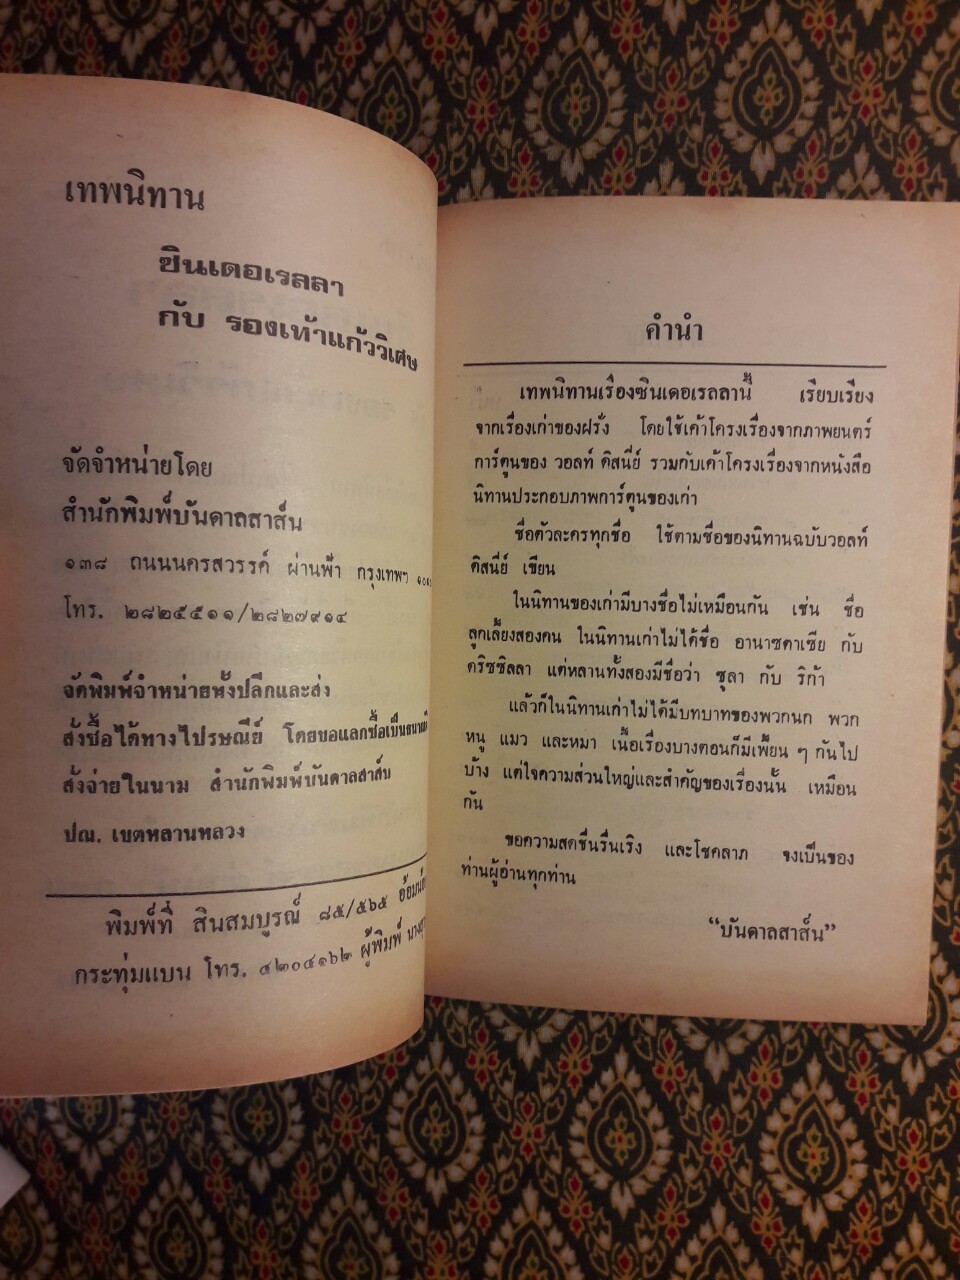 เทพนิทาน
ซินเดอเรลลา
กับ รองเท้าแก้ววิเศษ
จัดจำหน่ายโดย
สำนักพิมพ์บันดาลสาส์น
๑๓๘ ถนนนครสวรรค์ ผ่านฟ้า กรุงเทพฯ
โทร. ๒๘๒๕๕๑๑/๒๘๒๗๙๑๔
จัดพิมพ์จำหน่ายทั้งปลีกและส่ง
สั่งซื้อได้ทางไปรษณีย์ โดยขอแลกซื้อเป็นธนาณัติ
สั่งจ่ายในนาม สำนักพิมพ์บันดาลสาส์น
ปณ. เขตหลานหลวง
พิมพ์ที่ สินสมบูรณ์ ๘๕/๕๖๕ อ้อมน้อย
กระทุ่มแบน โทร. ๔๒๐๔๑๖๒ ผู้พิมพ์
คำนำ
เทพนิทานเรื่องซินเดอเรลลานี้ เรียบเรียง
จากเรื่องเก่าของฝรั่ง โดยใช้เค้าโครงเรื่องจากภาพยนตร์
การ์ตูนของ วอลท์ ดิสนี่ย์ รวมกับเค้าโครงเรื่องจากหนังสือ
นิทานประกอบภาพการ์ตูนของเก่า
ชื่อตัวละครทุกชื่อ ใช้ตามชื่อของนิทานฉบับวอลท์
ดิสนี่ย์ เขียน
ในนิทานของเก่ามีบางชื่อไม่เหมือนกัน เช่น ชื่อ
ลูกเลี้ยงสองคน ในนิทานเก่าไม่ได้ชื่อ อานาซตาเซีย กับ
ดริซซิลลา แต่หลานทั้งสองมีชื่อว่า ซูลา กับ ริก้า
แล้วก็ในนิทานเก่าไม่ได้มีบทบาทของพวกนก พวก
หนู แมว และหมา เนื้อเรื่องบางตอนก็มีเพี้ยน ๆ กันไป
บ้าง แต่ใจความส่วนใหญ่และสำคัญของเรื่องนั้น เหมือน
กัน
ขอความสดชื่นรื่นเริง และโชคลาภ จงเป็นของ
ท่านผู้อ่านทุกท่าน
“บันดาลสาส์น”